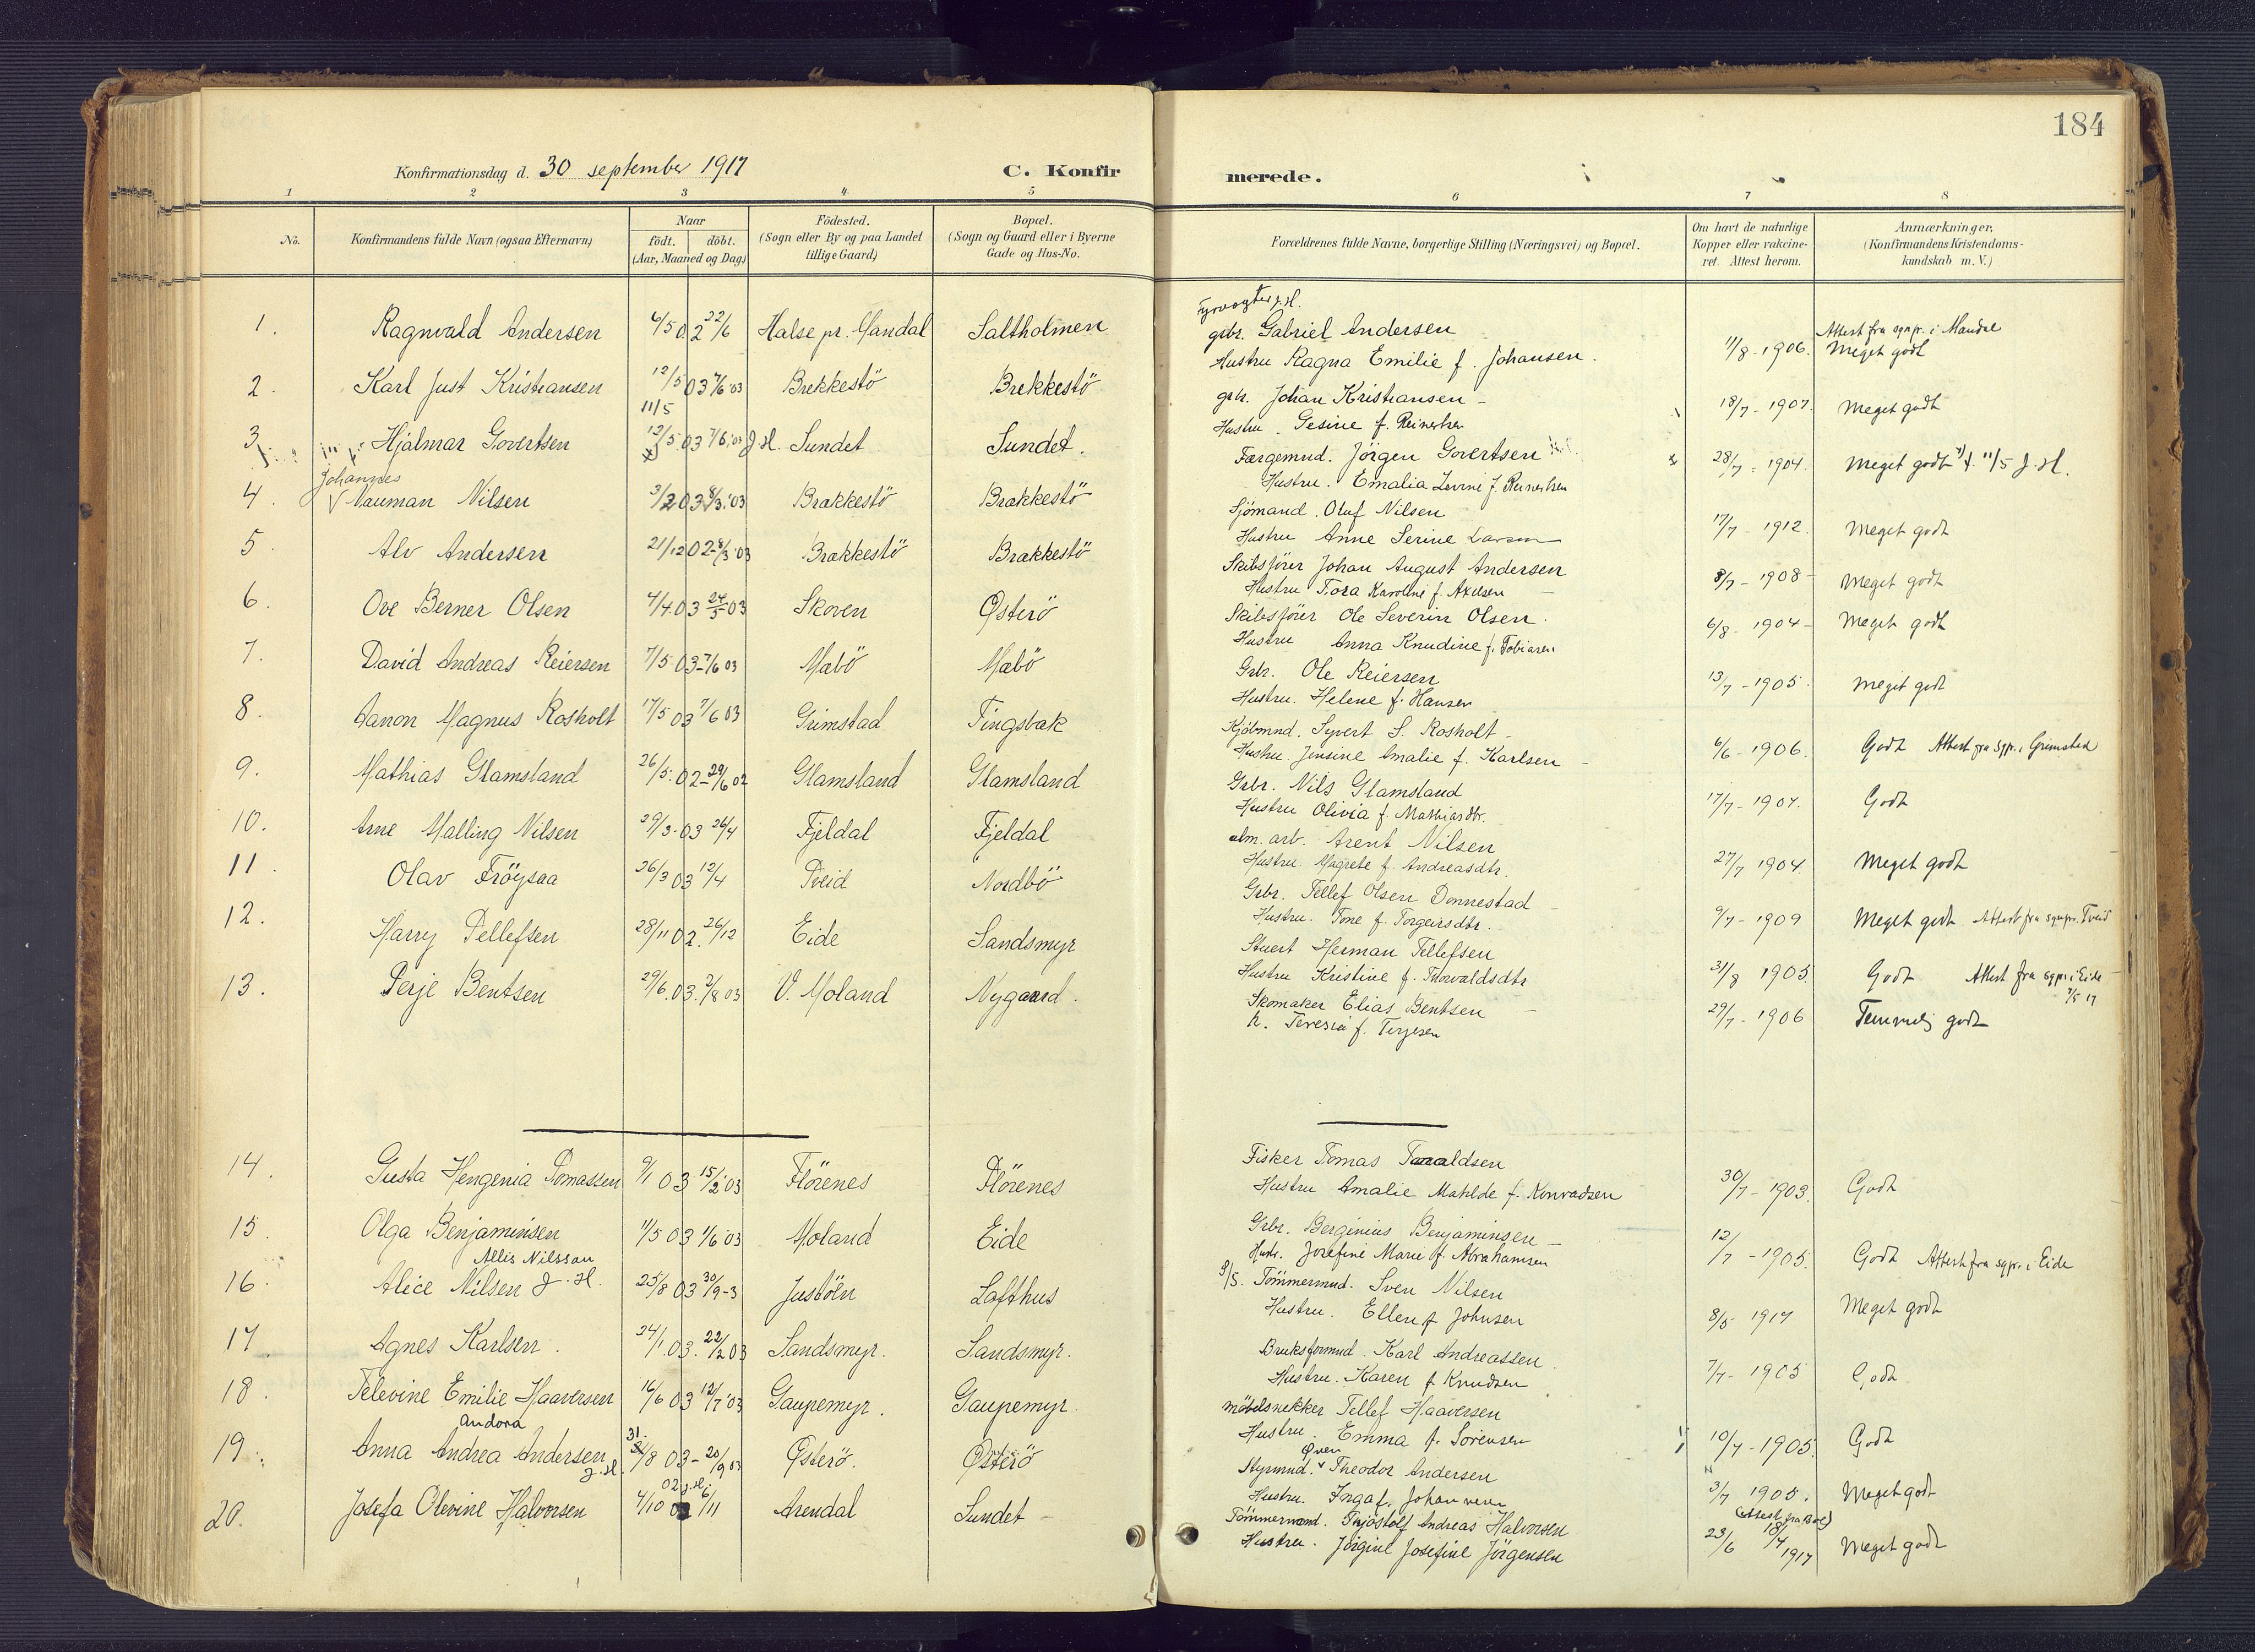 184
Konfirmationsdag d. 30 september 1917
C. Konfirmerede.
1 2 3 4 5 6 7 8
No.
Konfirmandens fulde Navn (ogsaa Efternavn)
Naar
födt. döbt.
(Aar, Maaned og Dag)
Födested.
(Sogn eller By og paa Landet
tillige Gaard)
Bopæl.
(Sogn og Gaard eller i Byerne
Gade og Hus-No.
Forældrenes fulde Navne, borgerlige Stilling (Næringsvei) og Bopæl.
Om havt de naturlige
Kopper eller vakcine-
ret. Attest herom.
Anmærkninger,
(Konfirmandens Kristendoms-
kundskab m. V.)
1. Ragnvald Andersen 6/5 02 22/6 Halse pr. Mandal Saltholmen
Fyrvogter J. H.
grbr. Gabriel Andersen
Hustru Ragna Emilie f. Johansen.
11/8 - 1906. Attest fra sgpr. i Mandal
Meget godt
2. Karl Just Kristiansen 12/5 03 7/6 03 Brekkestö Brekkestö
grbr. Johan Kristiansen
Hustru. Gesine f. Reinertsen
18/7 - 1907. Meget godt
3. Hjalmar Govertsen 11/5 12/5 03 7/6 03 J. H. Sundet Sundet.
Færgemnd. Jörgen Govertsen
Hustru. Emalia Lovine f. Reinertsen
28/7 - 1904. Meget godt f. 11/5 J. H.
4. Johannes
Nauman Nilsen 3/2 03 8/3 03 Brækkestö Brækkestö
Sjömand. Oluf Nilsen
Hustru Anne Serine Larsen
17/7 - 1912. Meget godt
5. Alv Andersen 21/12 02 - 8/3 03 Brækkestö Brækkestö
Skibsförer Johan August Andersen
Hustru Tora Karoline f. Axelsen
8/7 - 1908 Meget godt
6. Ove Berner Olsen 4/4 03 24/5 03 Skoven Østerö
Skibsförer Ole Severin Olsen.
Hustru Anna Knudine f. Tobiasen
6/8 - 1904 - Meget godt
7. David Andreas Reiersen 7/5 03 - 7/6 03 Mæbö Mæbö
Grbr. Ole Reiersen
Hustru. Helene f. Hansen
13/7 - 1905. Meget godt
8. Aanon Magnus Rosholt 17/5 03 7/6 03 Grimstad Tingsbæk
Kjöbmnd. Syvert S. Rosholt
Hustru Jensine Amalie f. Karlsen
6/6 - 1906. Godt Attest fra sgpr. i Grimstad
9. Mathias Glamsland 26/5. 02 - 29/6 02 Glamsland Glamsland
Grbr. Nils Glamsland
Hustru Olivia f. Mathiasdtr.
17/7 - 1907. Godt
10. Arne Malling Nilsen 29/3 - 03 26/4 Fjeldal Fjeldal
alm. arb. Arent Nilsen
Hustru. Magrete f. Andreasdtr.
27/7 1904 Meget godt
11. Olav Fröysaa 26/3 03 12/4 Tveid Nordbö
Grbr. Tellef Olsen Donnestad
Hustru. Tone f. Torgeirsdtr.
9/7 - 1909 Meget godt Attest fra sgnpr. Tveid
12. Harry Tellefsen 28/11 02. 26/12 Eide Sandsmyr
Stuert Herman Tellefsen
Hustru Kristine f. Thorvaldsdtr
31/8 1905. Godt Attest fra sgpr. i Eide
7/5 17
13. Terje Bentsen 29/6. 03. 2/8 03 V. Moland Nygaard.
Skomaker Elias Bentsen
H. Teresia f. Terjesen
29/7 - 1906 Temmelig godt
14. Gusta Hengenia Tomassen 9/1 03 15/2 03 Flörenes Flörenes
Fisker Tomas Taraldsen
Hustru Amalie Matilde f. Konradsen
30/7 - 1903. Godt
15. Olga Benjaminsen 11/5 03 1/6 03 Moland Eide
Grbr. Berginius Benjaminsen
Hustr. Josefine Marie f. Abrahamsen
12/7 - 1905. Godt Attest fra sgpr. i Eide
16. Allis Nilsson
Alice Nilsen J. H. 25/8 03 30/9 - 3 Justöen Lofthus
8/5. Tömmermnd. Sven Nilsen
Hustru. Ellen f Johnsen
8/5 1917 Meget godt
17. Agnes Karlsen. 24/1 03. 22/2 03 Sandsmyr. Sandsmyr.
Bruksformnd. Karl Andreassen.
Hustru. Karen f. Knudsen
7/7 - 1905 Godt
18. Televine Emilie Haaversen 16/6 03 12/7 03 Gaupemyr. Gaupemyr.
møbelsnekker Tellef Haaversen
Hustru. Emma f. Sörensen
10/7 - 1905. Godt
19. Andora
Anna Andrea Andersen J. H. 31. /8 03 - 20/9 03 Østerö. Østerö
Styrmnd. Theodor Andersen
Hustru. Inga f. Johannesen
3/7 1905. Meget godt
20. Josefa Olevine Halvorsen 4/10 02 J. H. 6/11 Arendal Sundet -
Tömmermand. Thjöstolf Andreas Halvorsen
Hustru. Jörgine Josefine Jörgensen
23/6 1917 Meget godt